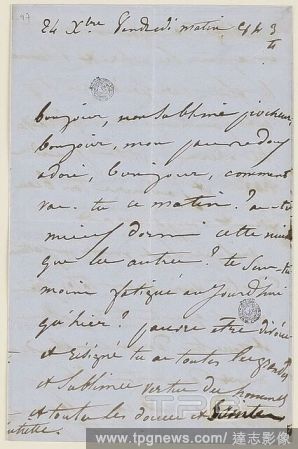 97
24 Xbre Vendredi matin 9h 3/4
bonjour, mon sublime piocheur
bonjour, mon pauvre doux
adoré, bonjour, comment
vas-tu ce matin? as-tu
mieux dormi cette nuit
que les autres? te sens-tu
moins fatigué aujourd'hui
qu'hier? pauvre être dévoué
et résigné tu as toutes les grandes
et sublimes vertus des hommes
et toutes les douces et
TPG
www.tpgnews.com / 達志影像